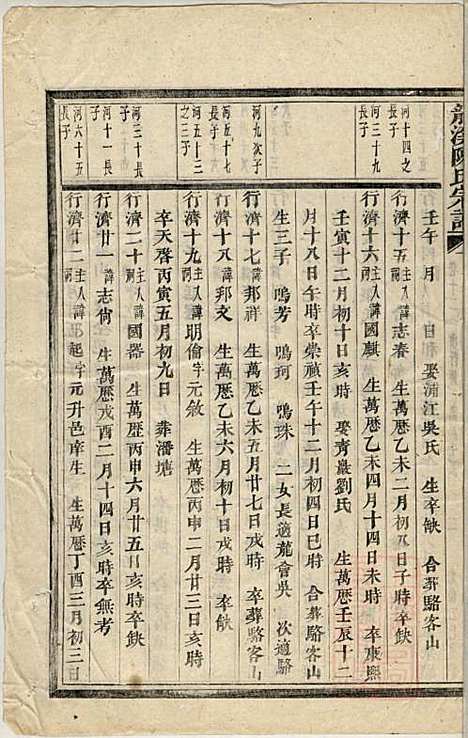 龍溪陳氏宗譜
壬午 月 日 娶浦江吳氏 生卒缺 合葬駱客山
河十四之長子
行濟十五 主人諱志春 生萬歷乙未二月初八日子時 卒缺
河三十九長子
行濟十六 諱國麒 生萬歷乙未四月十四日未時 卒康熙
壬寅十二月初十日亥時 娶青巖劉氏 生萬歷壬辰十二
月十八日午時卒崇禎壬午十二月初四日巳時 合葬駱客山
生三子 鳴芳 鳴珂 鳴珠 二女長適龍會吳 次適駱
河九次子
行濟十七 諱邦祥 生萬歷乙未五月廿七日戌時 卒葬駱客山
河五十七長子
行濟十八 諱邦文 生萬歷乙未六月初十日戌時 卒缺
河五十三之三子
行濟十九 主人諱明倫字元敘 生萬歷丙申二月廿三日亥時
卒天啓丙寅五月初九日 葬潘塘
河三十長子
行濟二十 主人諱國器 生萬歷丙申六月廿五日亥時 卒缺
河十一長子
行濟廿一 諱志尚 生萬歷戊酉二月十四日亥時卒無考
河六十五長子
行濟廿二 主人諱邦起字元升邑庠生 生萬歷丁酉三月初三日